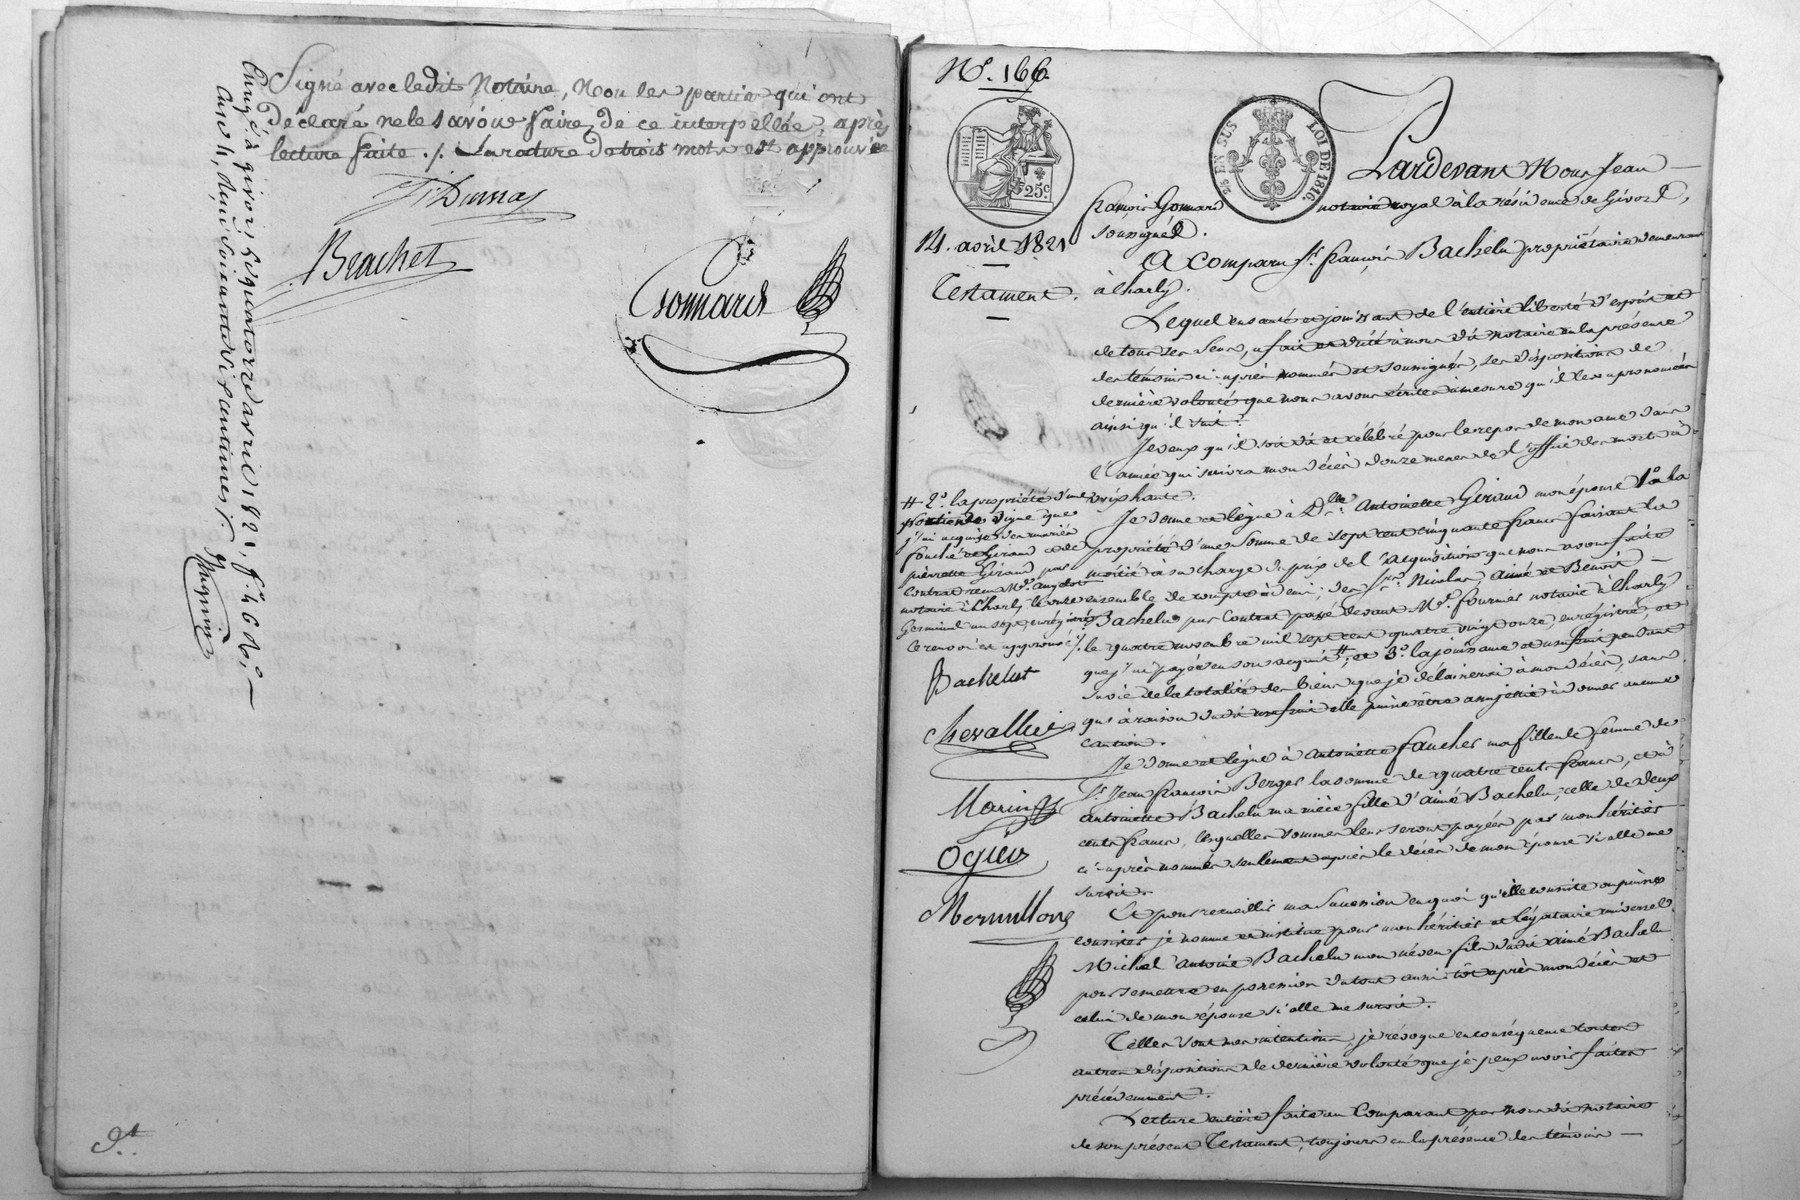 Signé avec ledit Notaire, Non les parties qui ont
déclaré ne le savoir faire, de ce interpellée, après
lecture faite ./. La rature de trois mots est approuvée
Dumas
Brachet
Gonnard
Enrgé à givors le quatorze avril 1821, f.o 46 R.o
, deux soixante dix centimes ./.
N.o 166
25c.
25 EN SUS
LOI DE 1816.
14. avril 1821
Testament.
Pardevant Nous Jean
françois Gonnard notaire royal à la résidence de Givors,
soussigné.
A comparu Sr. françois Bachelu propriétaire demeurant
à Charly.
Lequel en santé et jouissant de l'entière liberté d'esprit et
de tous ses sens, a fait et dicté à nous dit notaire en la présence
des témoins ci-après nommés et soussignés, ses dispositions de
dernière volonté que nous avons écrites à mesure qu'il les a prononcées
ainsi qu'il suit :
Je veux qu'il soit dit et célébré pour le repos de mon ame dans
l'année qui suivra mon décès douze messes de l'office des morts à
voix haute.
Je donne et lègue à Dlle. Antoinette Giraud mon épouse 1.o la
propriété d'une somme de sept cent cinquante francs faisant la
moitié à sa charge du prix de l'acquisition que nous avons faite
ensemble de compte à demi, des Srs. Nicolas, aimé et Benoit
Bachelu par contrat passé devant Me. fournier notaire à Charly
le quatre novembre mil sept cent quatre vingt onze, enregistré, et
que j'ai payée en son acquit #, et 3.o la jouissance et usufruit pendant
sa vie de la totalité des biens que je délaisserai à mon décès, sans
qu'à raison dudit usufruit elle puisse être assujetie à donner aucune
caution.
# 2.o la propriété d'une
portion de vigne que
j'ai acquise des mariés
fouché et Giraud et de
pierrette Giraud par
contrat reçu Me.
notaire à Charly le onze
Germinal an sept, enregistré
ce renvoi est approuvé ./.
Bachelut
Chevallier
Marin
Ogier
Mermillon
Je donne et lègue à Antoinette faucher ma filleule femme de
Sr. Jean françois Berger la somme de quatre cents francs, et à
antoinette Bachelu ma nièce fille d'aimé Bachelu, celle de deux
cents francs, lesquelles sommes leur seront payées par mon héritier
ci-après nommé seulement après le décès de mon épouse si elle me
survit.
Et pour recueillir ma succession en quoi qu'elle consiste ou puisse
consister je nomme et institue pour mon héritier et légataire universel
Michel antoine Bachelu mon néveu fils dudit aimé Bachelu
pour se mettre en possession du tout aussi-tôt après mon décès et
celui de mon épouse si elle me survit.
Telles sont mes intentions, je révoque en conséquence toutes
autres dispositions de dernière volonté que je peux avoir faites
précédemment.
Lecture entière faite au Comparant par nous dit notaire
de son présent Testament, toujours en la présence des témoins